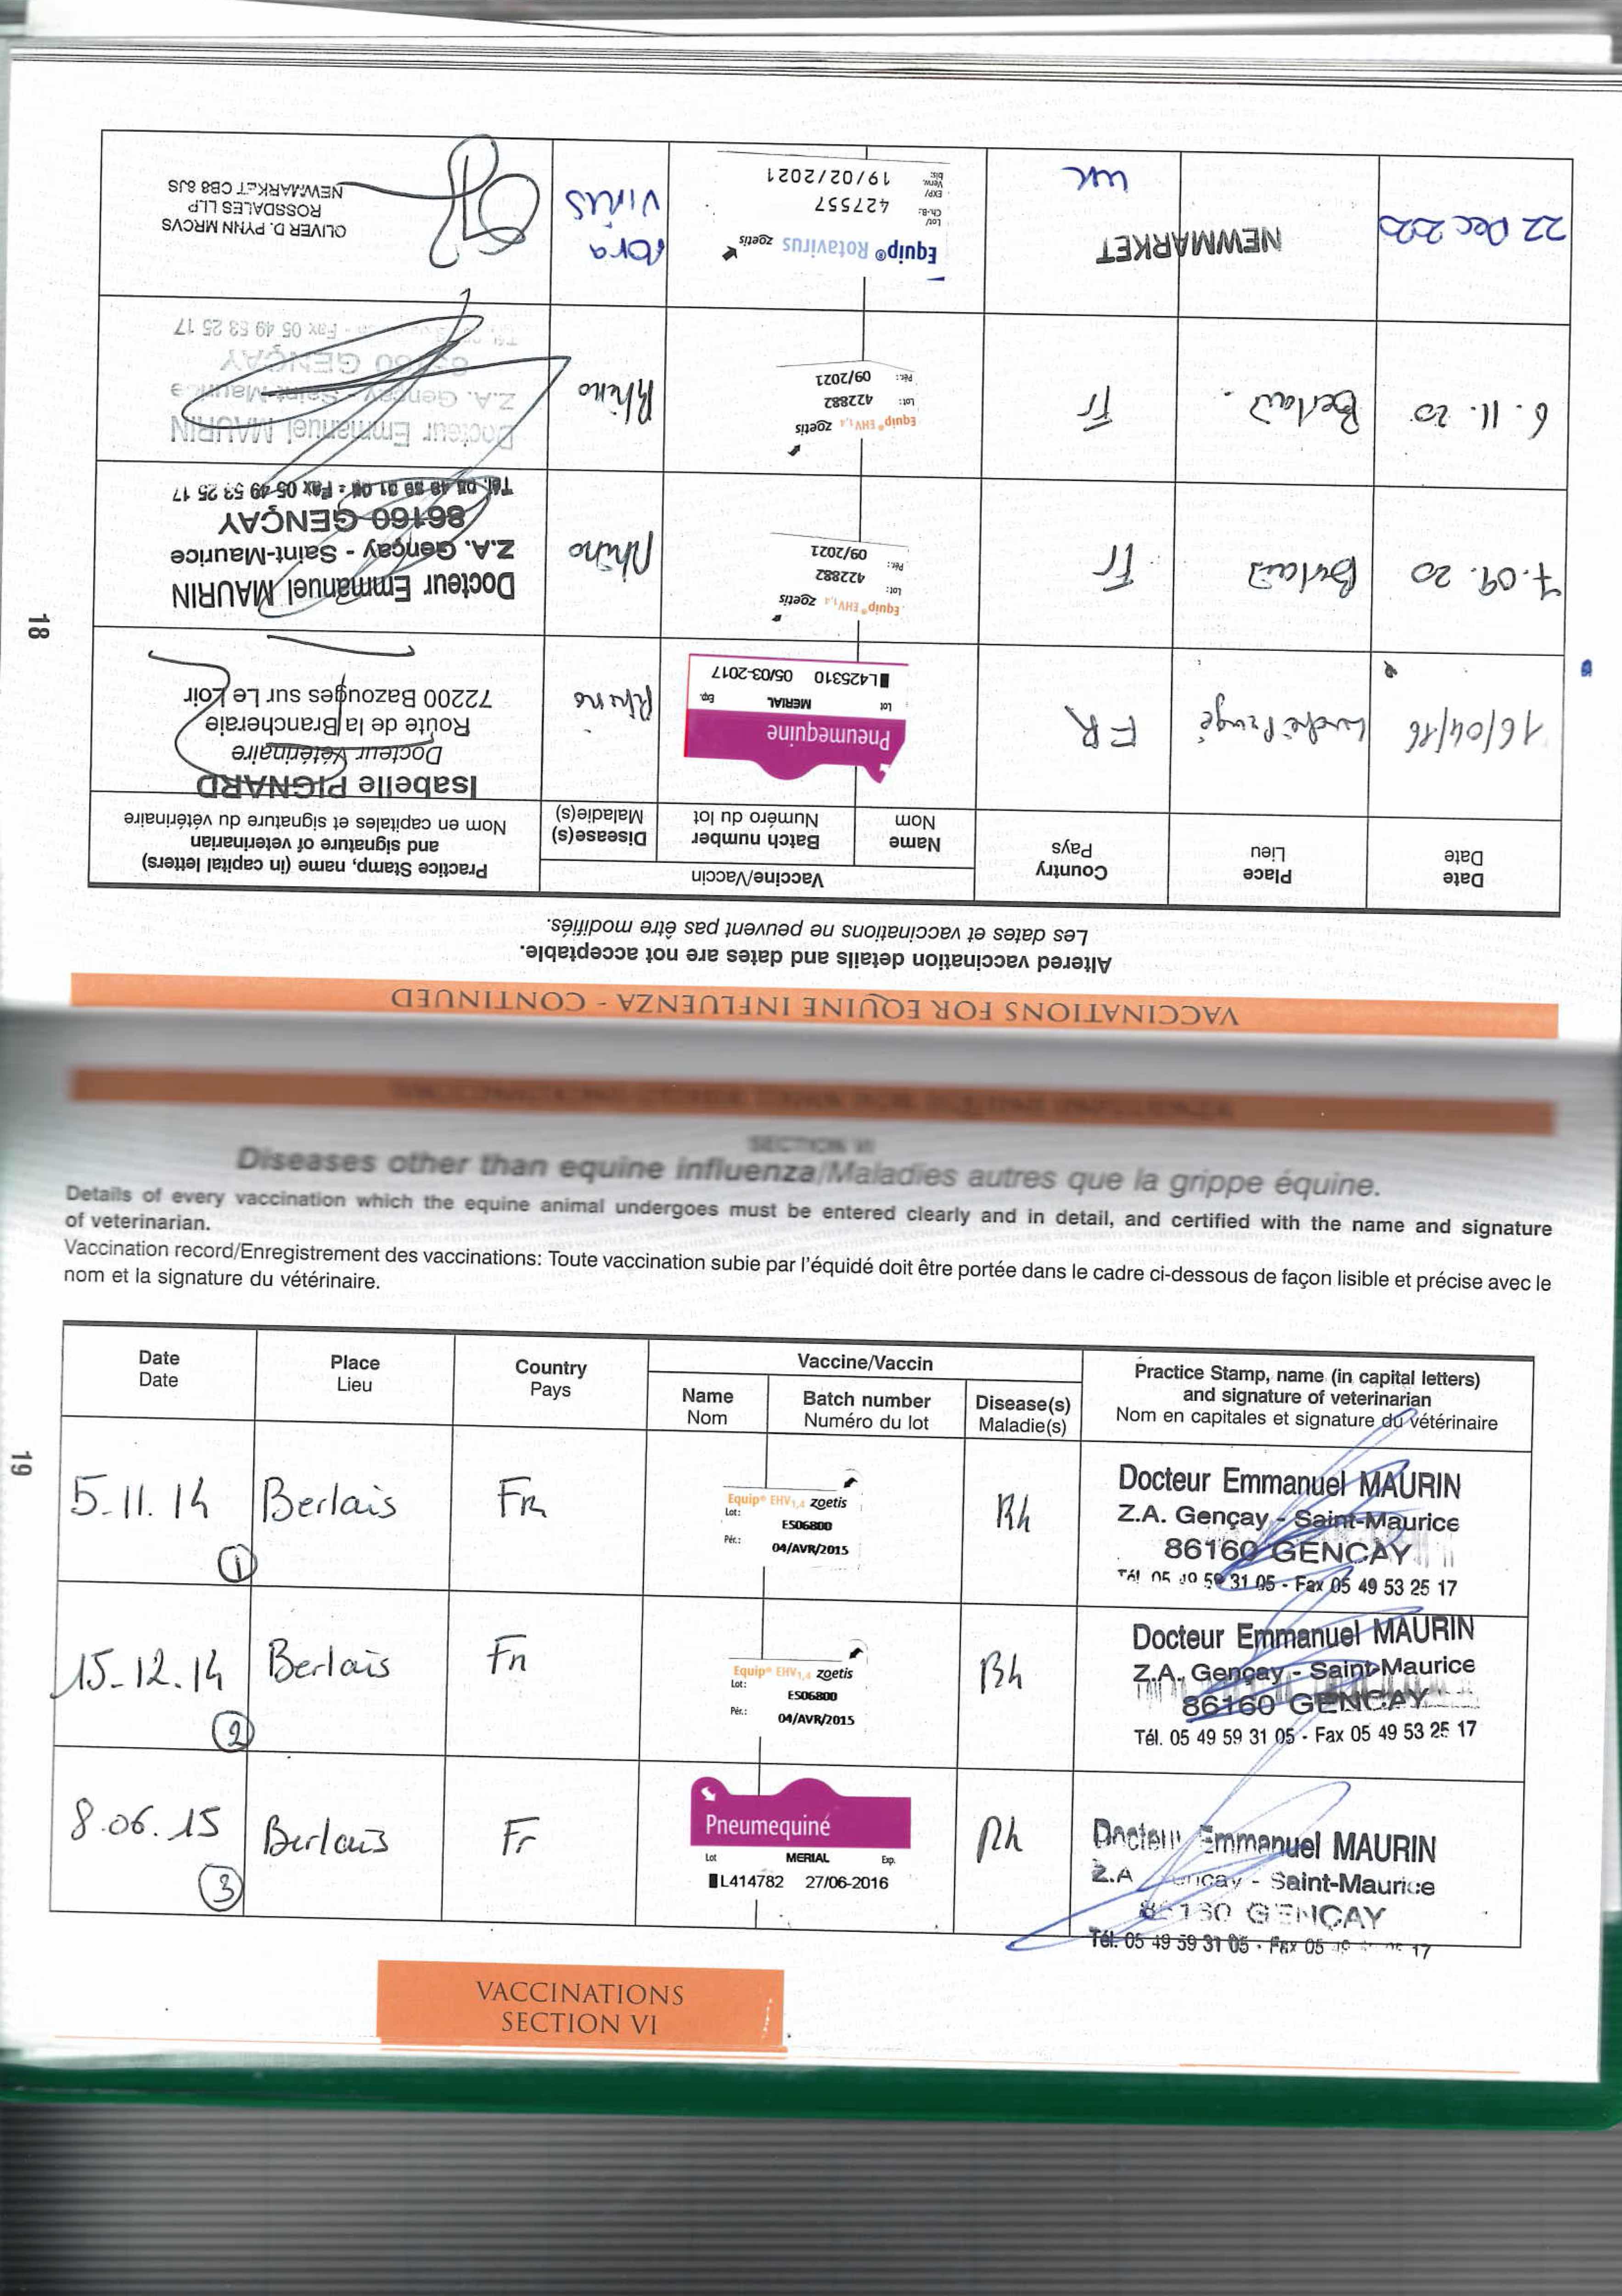 VACCINATIONS FOR EQUINE INFLUENZA - CONTINUED
Altered vaccination details and dates are not acceptable.
Les dates et vaccinations ne peuvent pas être modifiés.
Date
Date
Place
Lieu
Country
Pays
Vaccine/Vaccin
Name
Nom
Batch number
Numéro du lot
Disease(s)
Maladie(s)
Practice Stamp, name (in capital letters)
and signature of veterinarian
Nom en capitales et signature du vétérinaire
16/04/16
FR
Pneumequine
Lot MERIAL Exp.
L425310 05/03-2017
Rhino
Isabelle PIGNARD
Docteur Vétérinaire
Route de la Brancheraie
72200 Bazouges sur Le Loir
7.09.20
Berlais
Fr
Equip® EHV1,4 zoetis
Lot: 422882
Pér.: 09/2021
Rhino
Docteur Emmanuel MAURIN
Z.A. Gençay - Saint-Maurice
86160 GENÇAY
Tél. 05 49 59 31 05 - Fax 05 49 53 25 17
6.11.20
Berlais
Fr
Equip® EHV1,4 zoetis
Lot: 422882
Pér.: 09/2021
Rhino
Docteur Emmanuel MAURIN
Z.A. Gençay - Saint-Maurice
86160 GENÇAY
Fax 05 49 53 25 17
22 Dec 2020
NEWMARKET
UK
Equip® Rotavirus zoetis
Lot/
Ch.-B.: 427557
EXP/
Verw.
bis: 19/02/2021
Rota
Virus
OLIVER D. PYNN MRCVS
ROSSDALES LLP
NEWMARKET CB8 8JS
18
SECTION VI
Diseases other than equine influenza/Maladies autres que la grippe équine.
Details of every vaccination which the equine animal undergoes must be entered clearly and in detail, and certified with the name and signature
of veterinarian.
Vaccination record/Enregistrement des vaccinations: Toute vaccination subie par l'équidé doit être portée dans le cadre ci-dessous de façon lisible et précise avec le
nom et la signature du vétérinaire.
Date
Date
Place
Lieu
Country
Pays
Vaccine/Vaccin
Name
Nom
Batch number
Numéro du lot
Disease(s)
Maladie(s)
Practice Stamp, name (in capital letters)
and signature of veterinarian
Nom en capitales et signature du vétérinaire
5.11.14
1
Berlais
Fr
Equip® EHV1,4 zoetis
Lot: ES06800
Pér.: 04/AVR/2015
Rh
Docteur Emmanuel MAURIN
Z.A. Gençay - Saint-Maurice
86160 GENCAY
Tél. 05 49 59 31 05 - Fax 05 49 53 25 17
15.12.14
2
Berlais
Fr
Equip® EHV1,4 zoetis
Lot: ES06800
Pér.: 04/AVR/2015
Rh
Docteur Emmanuel MAURIN
Z.A. Gençay - Saint-Maurice
86160 GENCAY
Tél. 05 49 59 31 05 - Fax 05 49 53 25 17
8.06.15
3
Berlais
Fr
Pneumequiné
Lot MERIAL Exp.
L414782 27/06-2016
Rh
Docteur Emmanuel MAURIN
Z.A Gençay - Saint-Maurice
86160 GENÇAY
Tél. 05 49 59 31 05 - Fax 05 49 53 25 17
19
VACCINATIONS
SECTION VI